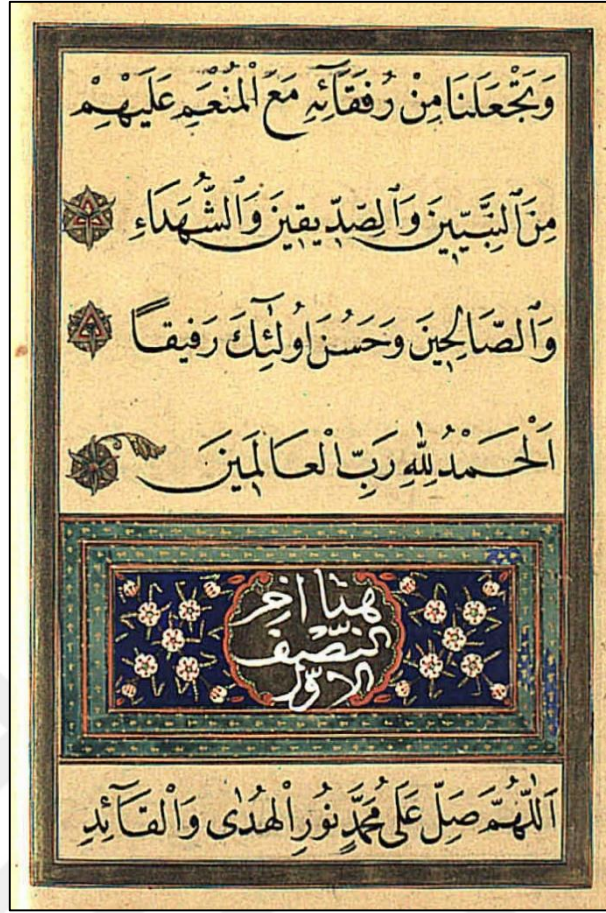 وَتَجْعَلَنَا مِنْ رُفَقَآئِهِ مَعَ الْمُنْعَمِ عَلَيْهِمْ
مِنَ ٱلنَّبِيّٖينَ وَٱلصِّدّٖيقٖينَ وَٱلشُّهَدَاءِ
وَٱلصَّالِحٖينَ وَحَسُنَ اُولٰٓئِكَ رَفٖيقاً
اَلْحَمْدُ لِلّٰهِ رَبِّ الْعَالَمٖينَ
هذا اخِر
النّصْف
الاوّل
اَللّٰهُمَّ صَلِّ عَلٰى مُحَمَّدٍ نُورِ الْهُدٰى وَالْقَآئِدِ